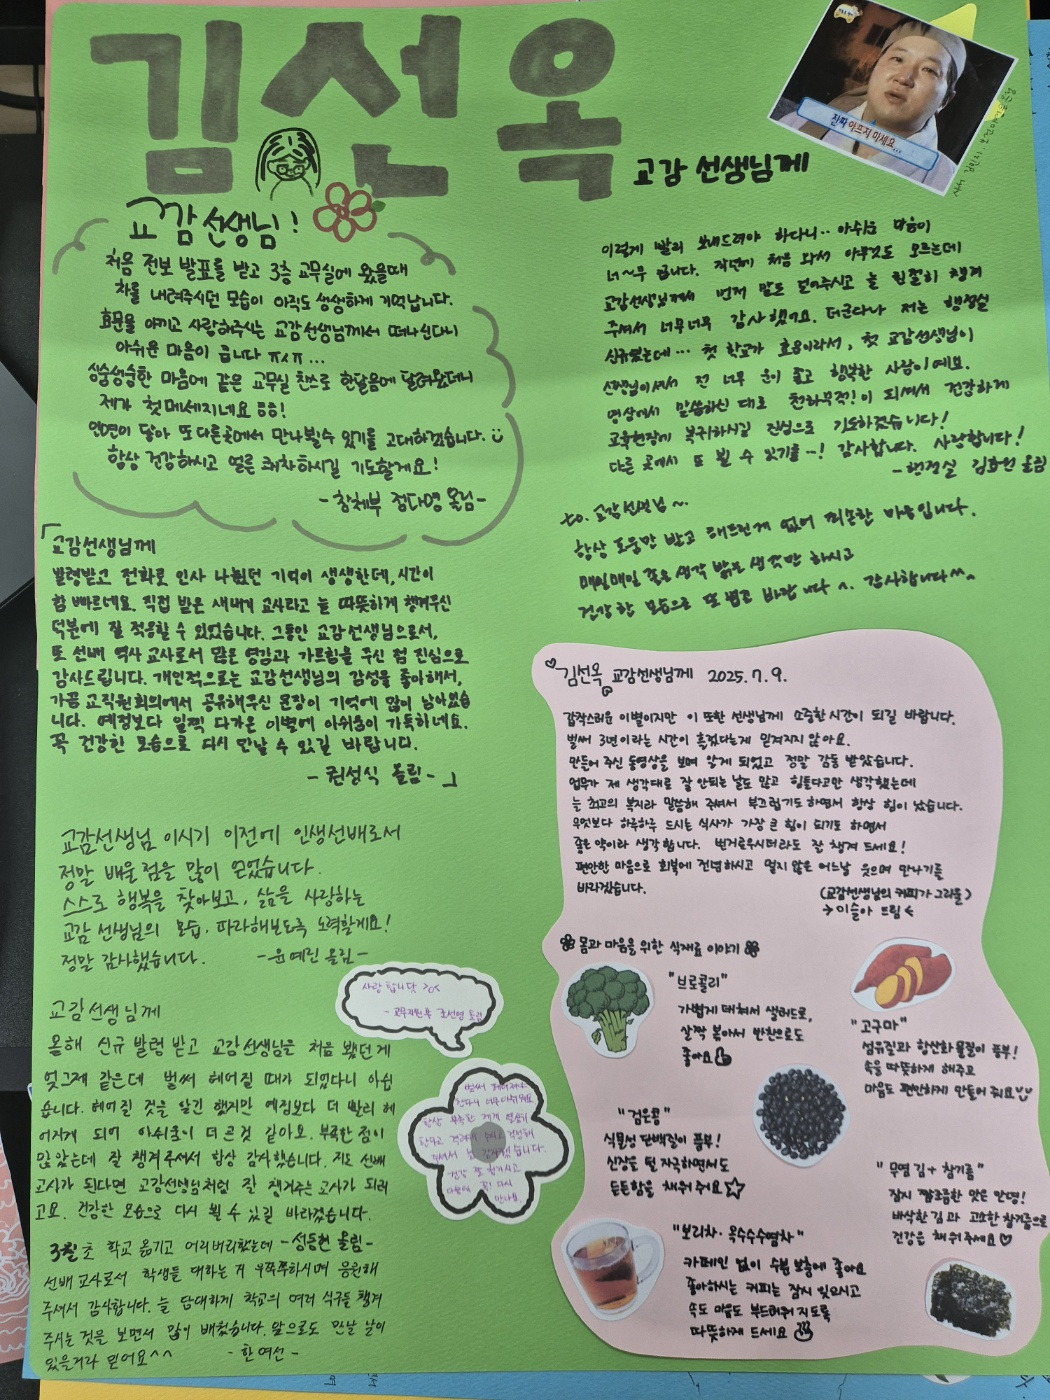 김선옥
교감 선생님께
진짜 아프지 마세요...
교감선생님!
처음 전보 발표를 받고 3층 교무실에 왔을때
차를 내려주시던 모습이 아직도 생생하게 기억납니다.
효문을 아끼고 사랑해주시는 교감선생님께서 떠나신다니
아쉬운 마음이 큽니다 ㅠㅅㅠ...
싱숭생숭한 마음에 같은 교무실 찬스로 한달음에 달려왔더니
제가 첫메세지네요 ㅎㅎ!
인연이 닿아 또다른곳에서 만나뵐수 있기를 고대하겠습니다.
항상 건강하시고 얼른 쾌차하시길 기도할게요!
- 창체부 정다영 올림 -
이렇게 빨리 보내드려야 하다니.. 아쉬운 마음이
너~무 큽니다. 작년에 처음 와서 아무것도 모르는데
교감선생님께서 먼저 말도 걸어주시고 늘 친절히 챙겨
주셔서 너무너무 감사했어요. 더군다나 저는 행정실
신규였는데... 첫 학교가 효문이라서, 첫 교감선생님이
선생님이셔서 전 너무 운이 좋고 행복한 사람이에요.
영상에서 말씀하신 대로 천하무적?이 되셔서 건강하게
교육현장에 복귀하시길 진심으로 기도하겠습니다!
다른 곳에서 또 뵐 수 있기를~! 감사합니다. 사랑합니다!
- 행정실 김효원 올림
to. 교감선생님~
항상 도움만 받고 해드린게 없어 죄송한 마음입니다.
매일매일 좋은 생각 밝은 생각만 하시고
건강한 모습으로 또 뵙고 바랍니다 ^. 감사합니다^^.
「교감선생님께
발령받고 전화로 인사 나눴던 기억이 생생한데, 시간이
참 빠르네요. 직접 받은 새내기 교사라고 늘 따뜻하게 챙겨주신
덕분에 잘 적응할 수 있었습니다. 그동안 교감선생님으로서,
또 선배 역사 교사로서 많은 영감과 가르침을 주신 점 진심으로
감사드립니다. 개인적으로는 교감선생님의 감성을 좋아해서,
가끔 교직원회의에서 공유해주신 문장이 기억에 많이 남아있습
니다. 예정보다 일찍 다가온 이별에 아쉬움이 가득하네요.
꼭 건강한 모습으로 다시 만날 수 있길 바랍니다.
- 권성식 올림 -」
교감선생님 이시기 이전에 인생선배로서
정말 배울 점을 많이 얻었습니다.
스스로 행복을 찾아보고, 삶을 사랑하는
교감 선생님의 모습, 따라해보도록 노력할게요!
정말 감사했습니다. - 윤예린 올림 -
김선옥 교감선생님께 2025.7.9.
갑작스러운 이별이지만 이 또한 선생님께 소중한 시간이 되길 바랍니다.
벌써 3년이라는 시간이 흘렀다는게 믿겨지지 않아요.
만들어 주신 동영상을 보며 알게 되었고 정말 감동 받았습니다.
업무가 제 생각대로 잘 안되는 날도 많고 힘들다고만 생각했는데
늘 최고의 복지라 말씀해 주셔서 부끄럽기도 하면서 항상 힘이 났습니다.
무엇보다 하루하루 드시는 식사가 가장 큰 힘이 되기도 하면서
좋은 약이라 생각합니다. 번거로우시더라도 잘 챙겨 드세요!
편안한 마음으로 회복에 전념하시고 멀지 않은 어느날 웃으며 만나기를
바라겠습니다.
(교감선생님의 커피가 그리울)
→ 이슬아 드림 ←
몸과 마음을 위한 식재료 이야기
"브로콜리"
가볍게 데쳐서 샐러드로,
살짝 볶아서 반찬으로도
좋아요
"고구마"
섬유질과 항산화 물질이 풍부!
속을 따뜻하게 해주고
마음도 편안하게 만들어 줘요
"검은콩"
식물성 단백질이 풍부!
신장을 덜 자극하면서도
든든함을 채워줘요
"무염 김 + 참기름"
짜지 짭조름한 맛은 안녕!
바삭한 김과 고소한 참기름으로
건강을 채워주세요
"보리차·옥수수수염차"
카페인 없이 수분 보충에 좋아요
좋아하시는 커피는 잠시 잊으시고
속도 마음도 부드러워지도록
따뜻하게 드세요
사랑합니닷
- 교무지원부 조선영 올림
교감선생님께
올해 신규 발령 받고 교감선생님을 처음 뵀던 게
엊그제 같은데 벌써 헤어질 때가 되었다니 아쉽
습니다. 헤어질 것을 알긴 했지만 예정보다 더 빨리 헤
어지게 되어 아쉬움이 더 큰 것 같아요. 부족한 점이
많았는데 잘 챙겨주셔서 항상 감사했습니다. 저도 선배
교사가 된다면 교감선생님처럼 잘 챙겨주는 교사가 되려
고요. 건강한 모습으로 다시 뵐 수 있길 바라겠습니다.
- 성동현 올림 -
3월 초 학교 옮기고 어리버리했는데
선배 교사로서 학생들 대하는 거 우쭈쭈하시며 응원해
주셔서 감사합니다. 늘 담대하게 학교의 여러 식구들 챙겨
주시는 것을 보면서 많이 배웠습니다. 앞으로도 만날 날이
있을거라 믿어요^^ - 한여선 -